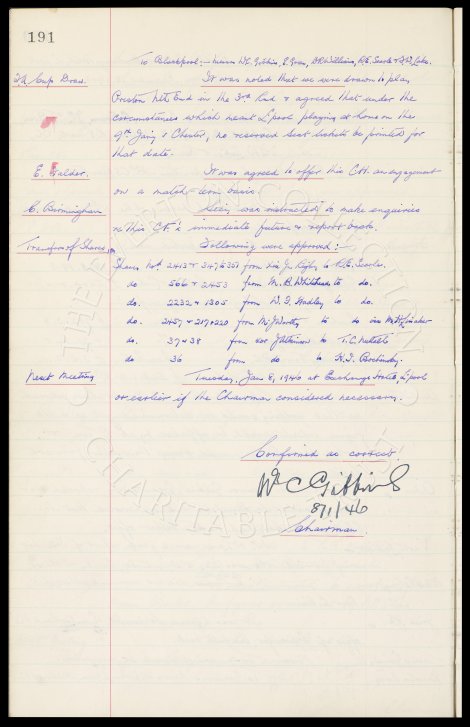 191
To Blackpool :- Messrs W.C. Gibbins, E. Green, R.R. Williams, R.E. Searle & A.W. Lake.
F.A. Cup Draw. It was noted that we were drawn to play
Preston Nth End in the 3rd Rnd & agreed that under the
circumstances which meant L'pool playing at home on the
9th Jan'y v Chester, no reserved seat tickets be printed for
that date.
E. Falder. It was agreed to offer this CH an engagement
on a match-term basis.
C. Birmingham Sec'y was instructed to make enquiries
re this C.F.'s immediate future & report back.
Transfer of Shares. Following were approved :-
Shares Nos 2413 & 347 & 351 from to R.E. Searle.
do 566 & 2453 from M.B. Whitehead to do.
do. 2232 & 1305 from W.J. Hadley to do.
do. 2457 & 219 & 220 from to do
do. 37 & 38 from to T.C. Nuttall
do 36 from do to
Next Meeting Tuesday, Jan 8, 1946 at Exchange Hotel, L'pool
or earlier if the Chairman considered necessary.
Confirmed as correct.
Wm C Gibbins
8/1/46
Chairman.
THE
CHARITABLE